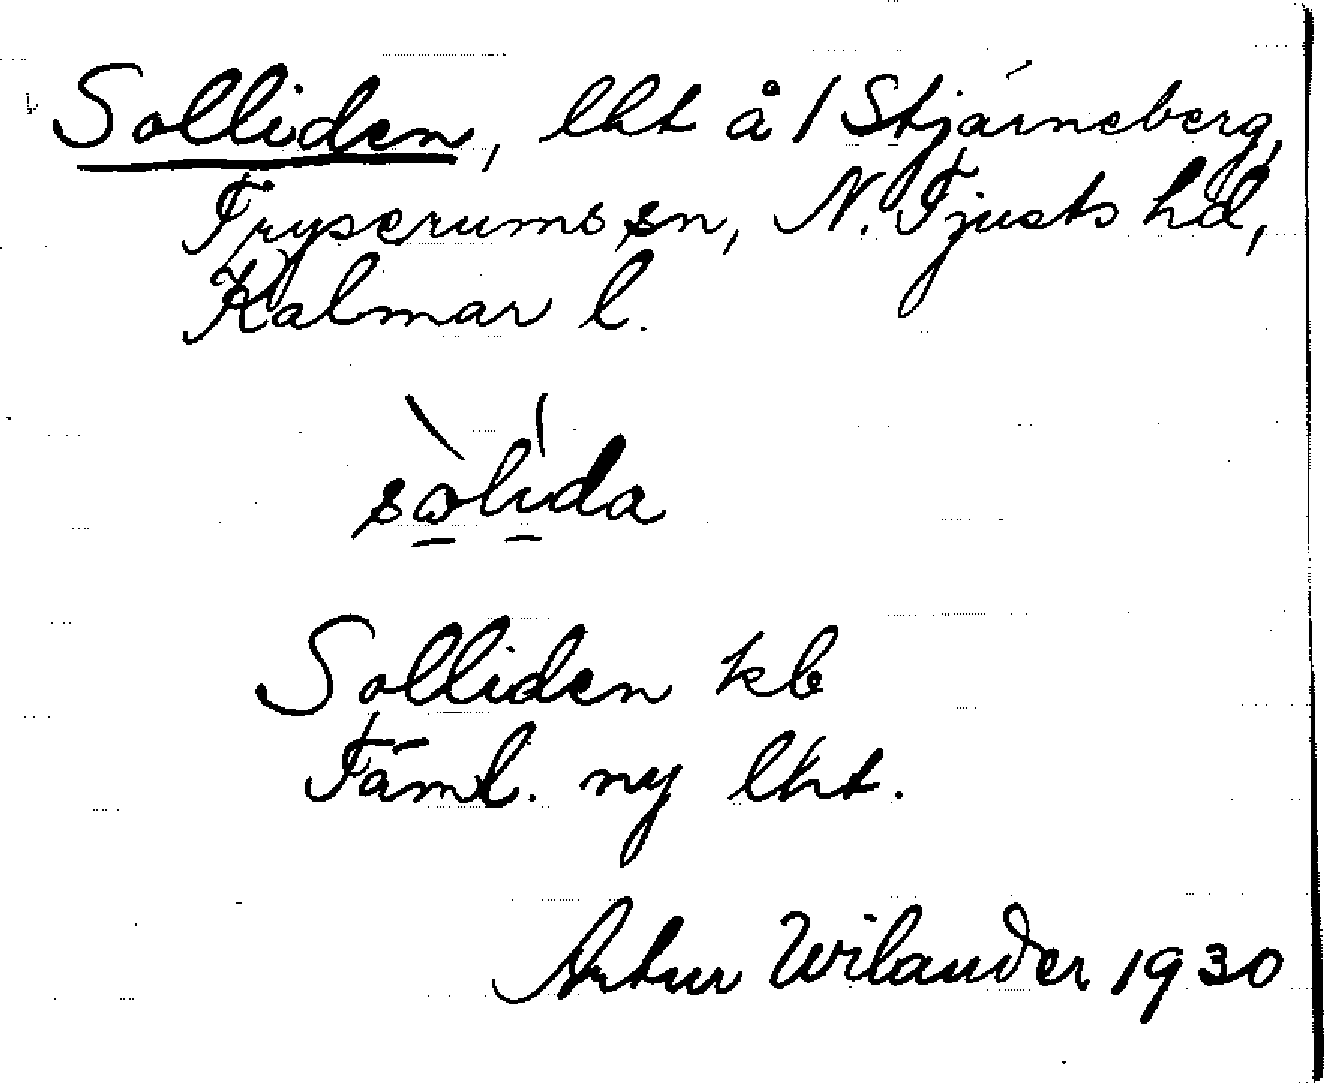 Solliden, lht å / Stjärneberg,
Tryserums sn, N. Tjusts hd,
Kalmar l.
sòlída
Solliden kb
Täml. ny lht.
Artur Wilander 1930